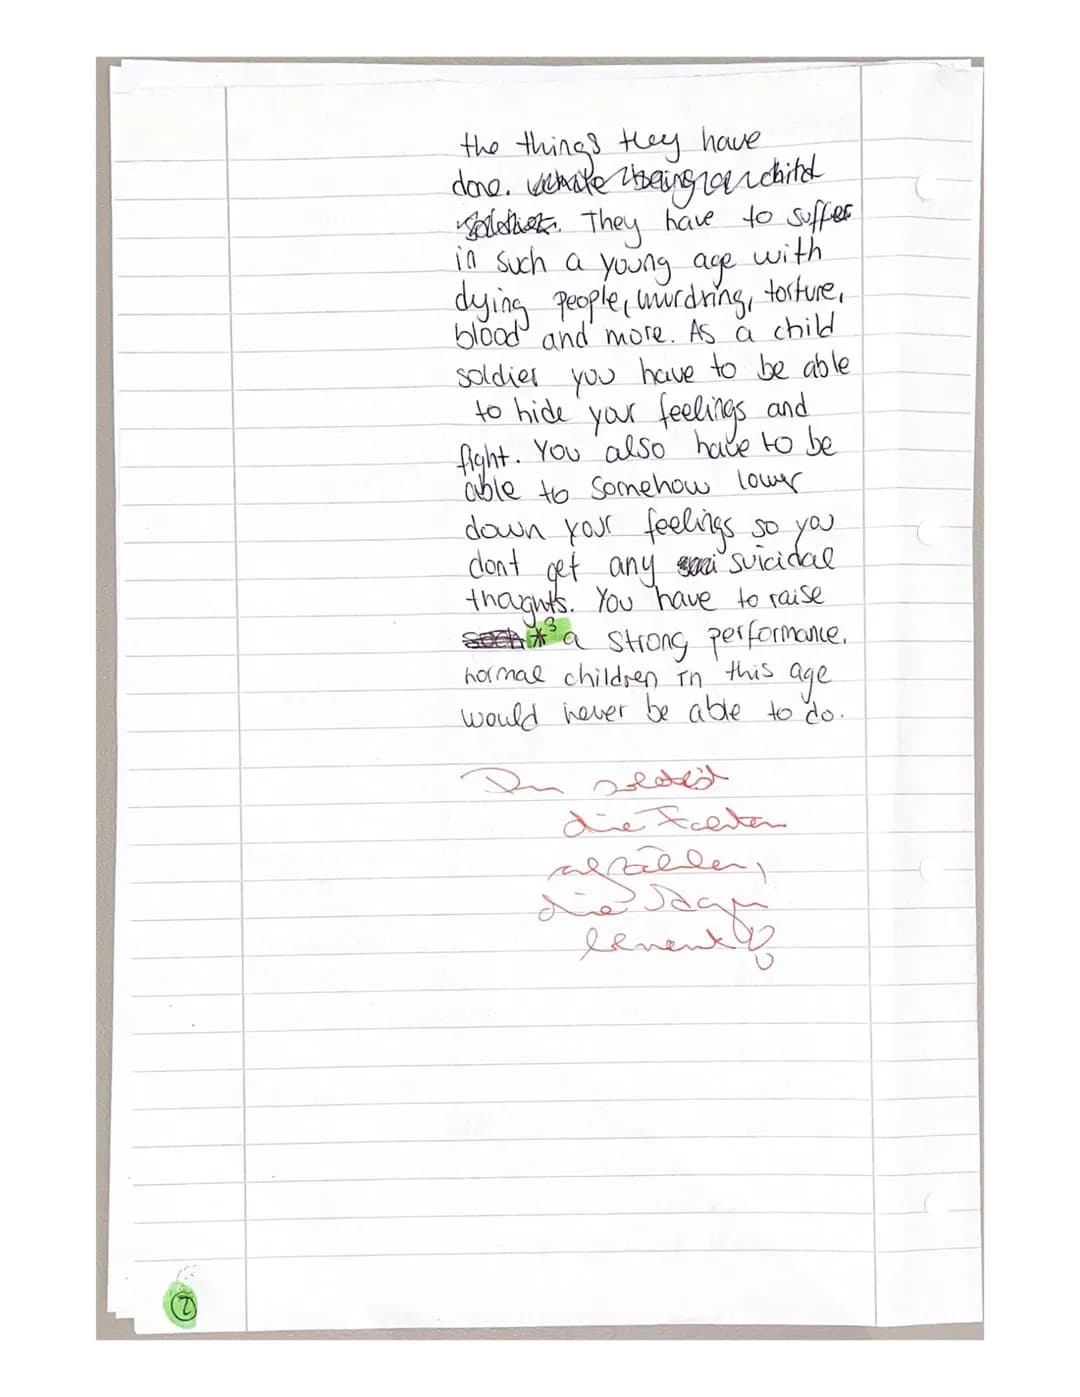 the things they have
done. while being a child
soldier. They have to suffer
in such a young age with
dying people, murdring, torture,
blood and more. As a child
soldier you have to be able
to hide your feelings and
fight. You also have to be
able to somehow lower
down your feelings so you
dont get any suicidal
thoughts. You have to raise
*3 a strong performance.
normal children in this age
would never be able to do.
Du solltest
die Fakten
aufzählen,
die Ishmael
②